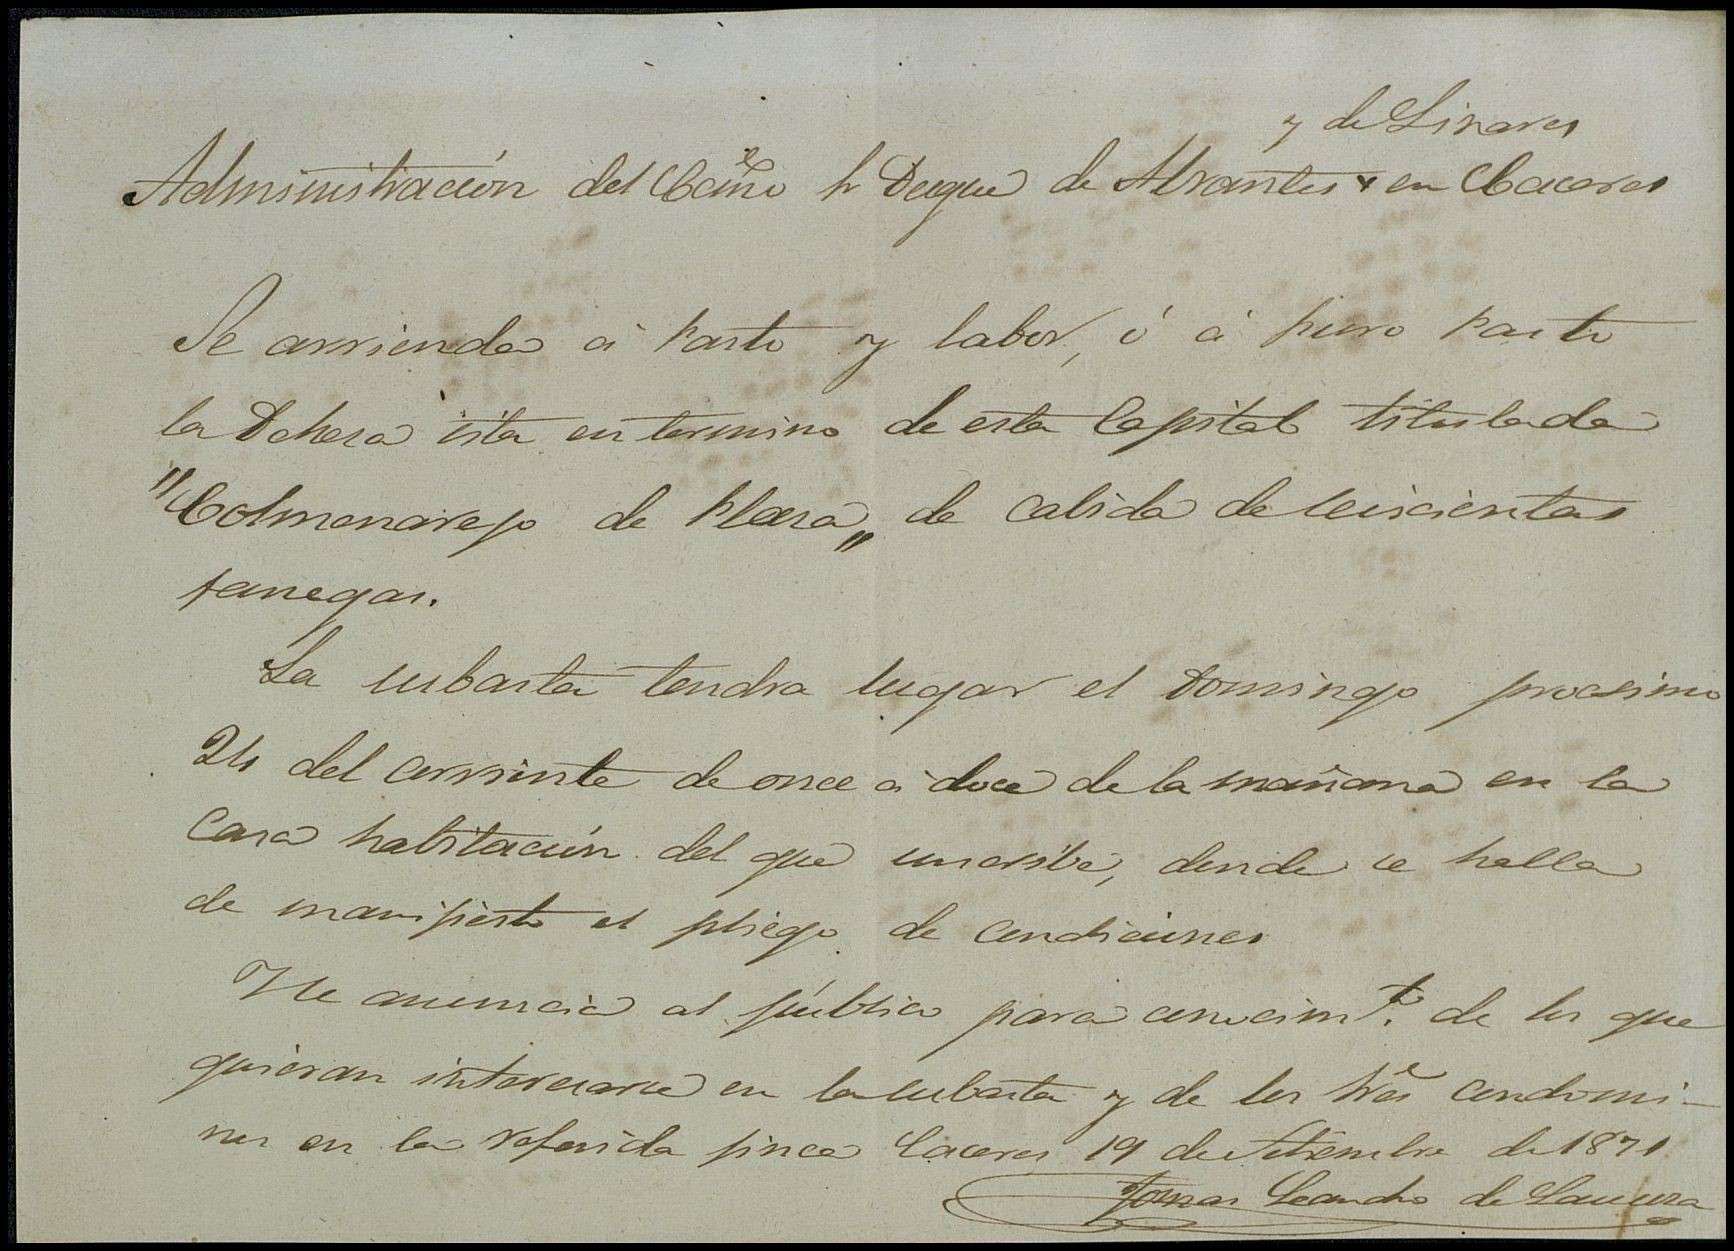 y de Linares
Administración del Excmo Sr Duque de Abrantes en Caceres
Se arrienda á pasto y labor, ó á puro pasto
la Dehesa sita en termino de esta Capital titulada
"Colmenarejo de Plasa„ de cabida de seiscientas
fanegas.
La subasta tendra lugar el Domingo procsimo
24 del corriente de once á doce de la mañana en la
casa habitación del que suscribe, donde se halla
de manifiesto el pliego de condiciones
Se anuncia al público para conocimto. de los que
quieran interesarse en la subasta y de los Sres condomi-
nos en la referida finca Caceres 19 de Setiembre de 1871
Tomas Leandro de